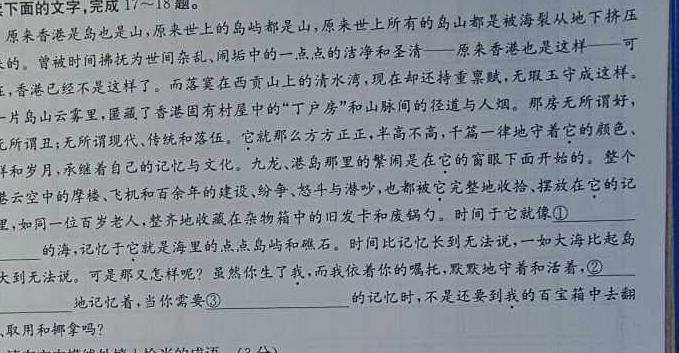 下面的文字,完成 17～18 题。
原来香港是岛也是山,原来世上的岛屿都是山,原来世上所有的岛山都是被海裂从地下挤压
的。曾被时间拂抚为世间杂乱、闹垢中的一点点的洁净和圣清——原来香港也是这样——可
,香港已经不是这样了。而落寞在西贡山上的清水湾,现在却还持重禀赋,无瑕玉守成这样。
一片岛山云雾里,匿藏了香港固有村屋中的“丁户房”和山脉间的径道与人烟。那房无所谓好,
无所谓丑;无所谓现代、传统和落伍。它就那么方方正正,半高不高,千篇一律地守着它的颜色、
样和岁月,承继着自己的记忆与文化。九龙、港岛那里的繁闹是在它的窗眼下面开始的。整个
港云空中的摩楼、飞机和百余年的建设、纷争、怒斗与潜吵,也都被它完整地收拾、摆放在它的记
里,如同一位百岁老人,整齐地收藏在杂物箱中的旧发卡和废锅勺。时间于它就像①
的海,记忆于它就是海里的点点岛屿和礁石。时间比记忆长到无法说,一如大海比起岛
大到无法说。可是那又怎样呢?虽然你生了我,而我依着你的嘱托,默默地守着和活着,②
地记忆着,当你需要③的记忆时,不是还要到我的百宝箱中去翻
取用和挪拿吗?